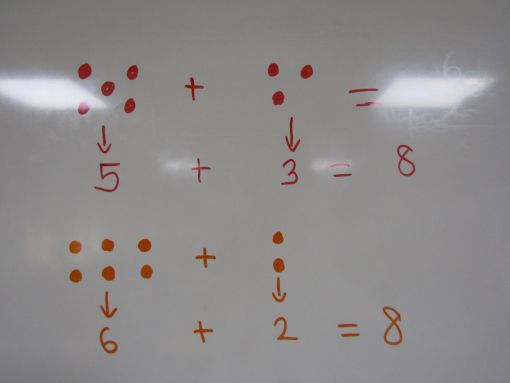 + =
5 + 3 = 8
+
6 + 2 = 8